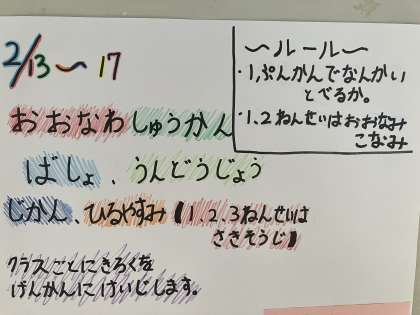 2/13〜17
おおなわしゅうかん
〜ルール〜
・1,ぷんかんでなんかい
とべるか。
・1、2ねんせいはおおなみ
こなみ
ばしょ、うんどうじょう
じかん、ひるやすみ【1、2、3ねんせいは
さきそうじ】
クラスごとにきろくを
げんかんにけいじします。